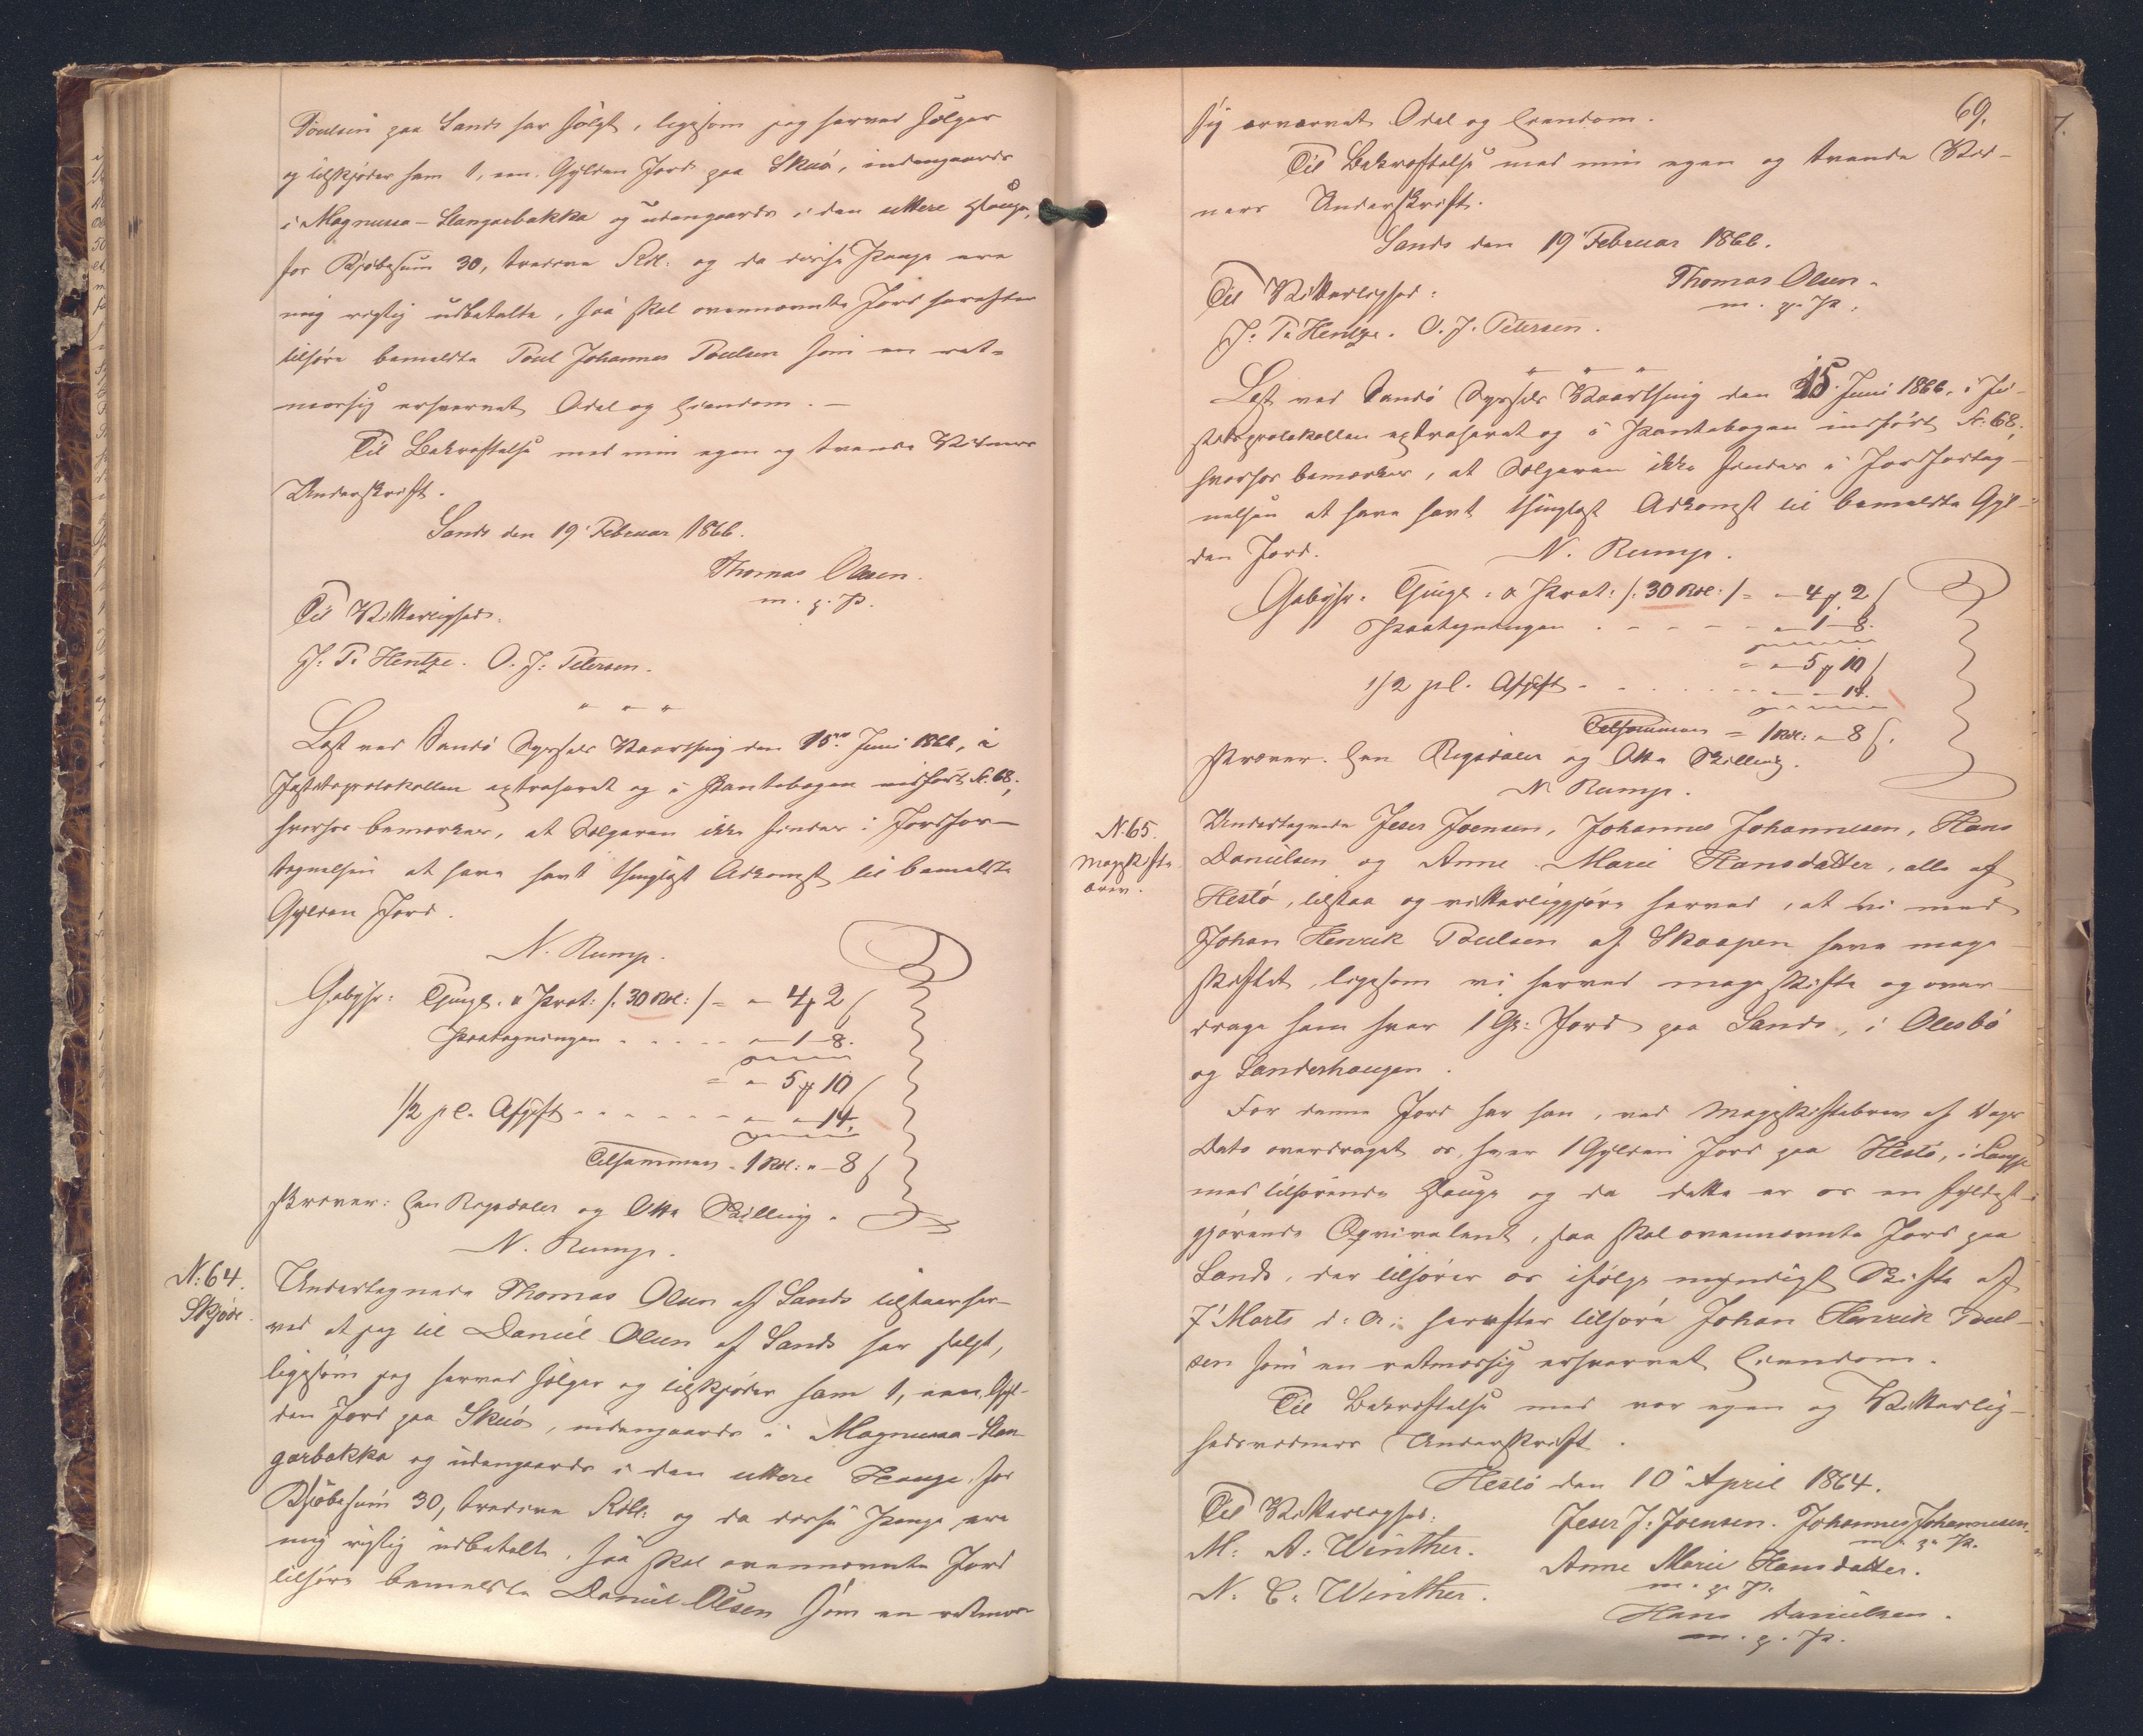 Poulsen paa Sands har sølgt, ligesom jeg herved sælger
og tilskjøder ham 1, een Gylden Jord paa Skuø, indengaards
i Magnussa-Langarbakka og udengaards i den uttere Hauge,
for Kjøbesum 30, tredeve Rdl: og da disse Penge ere
mig rigtig udbetalte, saa skal ovennævnte Jord herefter
tilhøre bemeldte Poul Johannes Poulsen som en ret-
mæssig erhvervet Odel og Eiendom. —
Til Bekræftelse med min egen og tvende Vidners
Underskrift.
Sands den 19' Februar 1866.
Thomas Olsen.
m. g. P.
Til Vitterlighed.
J. P. Hentze. O. J. Petersen.
" " "
Læst ved Sandø Syssels Vaarthing den 15de Juni 1866, i
Justitsprotokollen extraheret og i Pantebogen indført N. 68,
hvorhos bemærkes, at Sælgeren ikke findes i Jordfor-
tegnelsen at have havt thinglæst Adkomst til bemeldte
Gylden Jord.
N. Rump.
Gebyhr: Thingl. & Prot: /: 30 Rdl: / = " 4 ₰ 2 ſ
Paategningen . . . . . " 1 - 8.
= " 5 ₰ 10 ſ
1/2 pC. Afgift - - - - - - " " 14.
Tilsammen = 1 Rdl: " - 8 ſ
skriver: Een Rigsdaler og Otte Skilling.
N. Rump.
N: 64.
Skjøde.
Undertegnede Thomas Olsen af Sands tilstaar her-
ved at jeg til Daniel Olsen af Sands har solgt,
ligesom jeg herved sælger og tilskjøder ham 1, een Gyl-
den Jord paa Skuø, indengaards i Magnussa-Lan-
garbakka og udengaards i den uttere Hauge, for
Kjøbesum 30, tredeve Rdl: og da disse Penge ere
mig rigtig udbetalt, saa skal ovennævnte Jord
tilhøre bemeldte Daniel Olsen som en retmæs-
69.
sig erværvet Odel og Eiendom.
Til Bekræftelse med min egen og tvende Vid-
ners Underskrift.
Sands den 19' Februar 1866.
Thomas Olsen.
m. g. P.
Til Vitterlighed:
J. P. Hentze. O. J. Petersen.
" " "
Læst ved Sandø Syssels Vaarthing den 15. Juni 1866, i Ju-
stitsprotokollen extraheret og i Pantebogen indført N: 68,
hvorhos bemærkes, at Sælgeren ikke findes i Jordforteg-
nelsen at have havt thinglæst Adkomst til bemeldte Gyl-
den Jord.
N. Rump.
Gebyhr. Thingl. & Prot: /: 30 Rdl: / = " 4 ₰ 2 ſ
Paategningen . - - - - " 1 - 8.
= " 5 ₰ 10 ſ
1/2 pC. Afgift - - . . . . - " - 14.
Tilsammen = 1 Rdl: " 8 ſ.
skriver. Een Rigsdaler og Otte Skilling.
N. Rump.
N. 65.
Mageskifte-
brev.
Undertegnede Jeser Joensen, Johannes Johannesen, Hans
Danielsen og Anne Marie Hansdatter, alle af
Hestø, tilstaa og vitterliggjøre herved, at vi med
Johan Henrik Poulsen af Skaapen have mage-
skiftet, ligesom vi herved mageskifte og over-
drage ham hver 1 Gl: Jord paa Sands, i Olesbø
og Sanderhaugen.
For denne Jord har han, ved Mageskiftebrev af Dags
Dato overdraget os, hver 1 Gylden Jord paa Hestø, i Lauge
med tilhørende Hauge og da dette er os en fyldest-
gjørende Eqvivalent, saa skal ovennævnte Jord paa
Sands, der tilhører os ifølge myndigt Skifte af
7' Marts d: A: herefter tilhøre Johan Henrik Poul-
sen som en retmæssig erhvervet Eiendom.
Til Bekræftelse med vor egen og Vitterlig-
hedsvidners Underskrift.
Hestø den 10' April 1864.
Til Vitterlighed:
M: A: Winther.
N. C: Winther.
Jeser J: Joensen. Johannes Johannesen.
m. g. P.
Anne Marie Hansdatter.
m. g. P.
Hans Danielsen.
m. g. P.